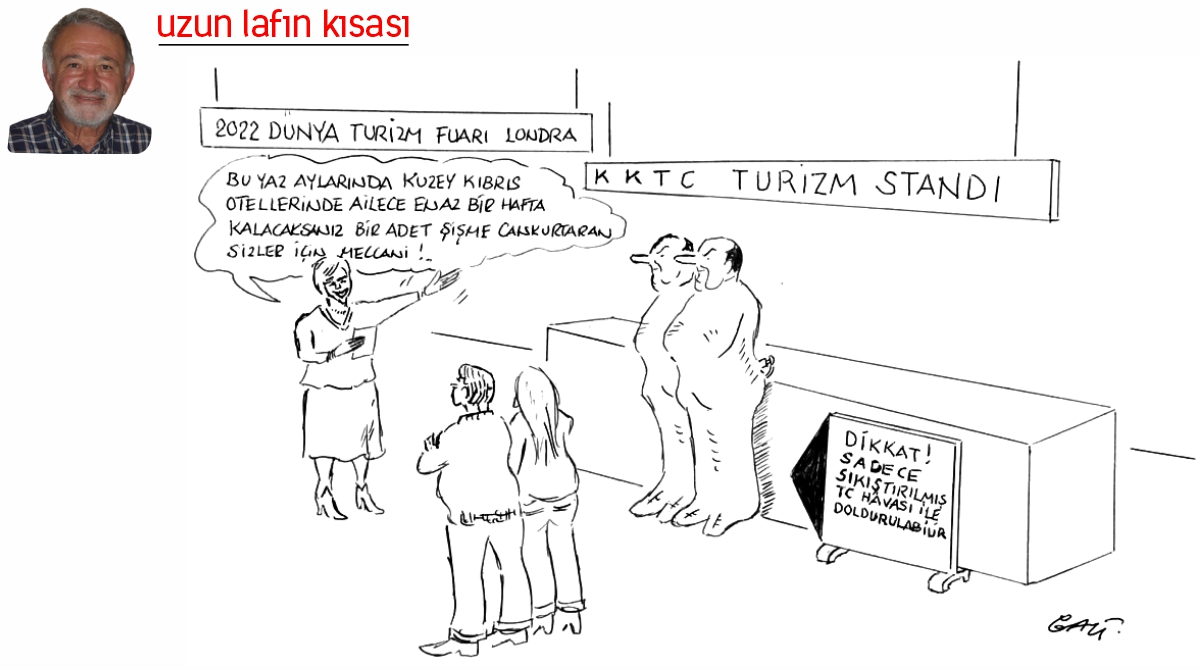 uzun lafın kısası
2022 DÜNYA TURİZM FUARI LONDRA
KKTC TURİZM STANDI
BU YAZ AYLARINDA KUZEY KIBRIS
OTELLERİNDE AİLECE ENAZ BİR HAFTA
KALACAKSANIZ BİR ADET ŞİŞME CANKURTARAN
SİZLER İÇİN MECCANİ!..
DİKKAT!
SADECE
SIKIŞTIRILMIŞ
TC HAVASI İLE
DOLDURULABİLİR